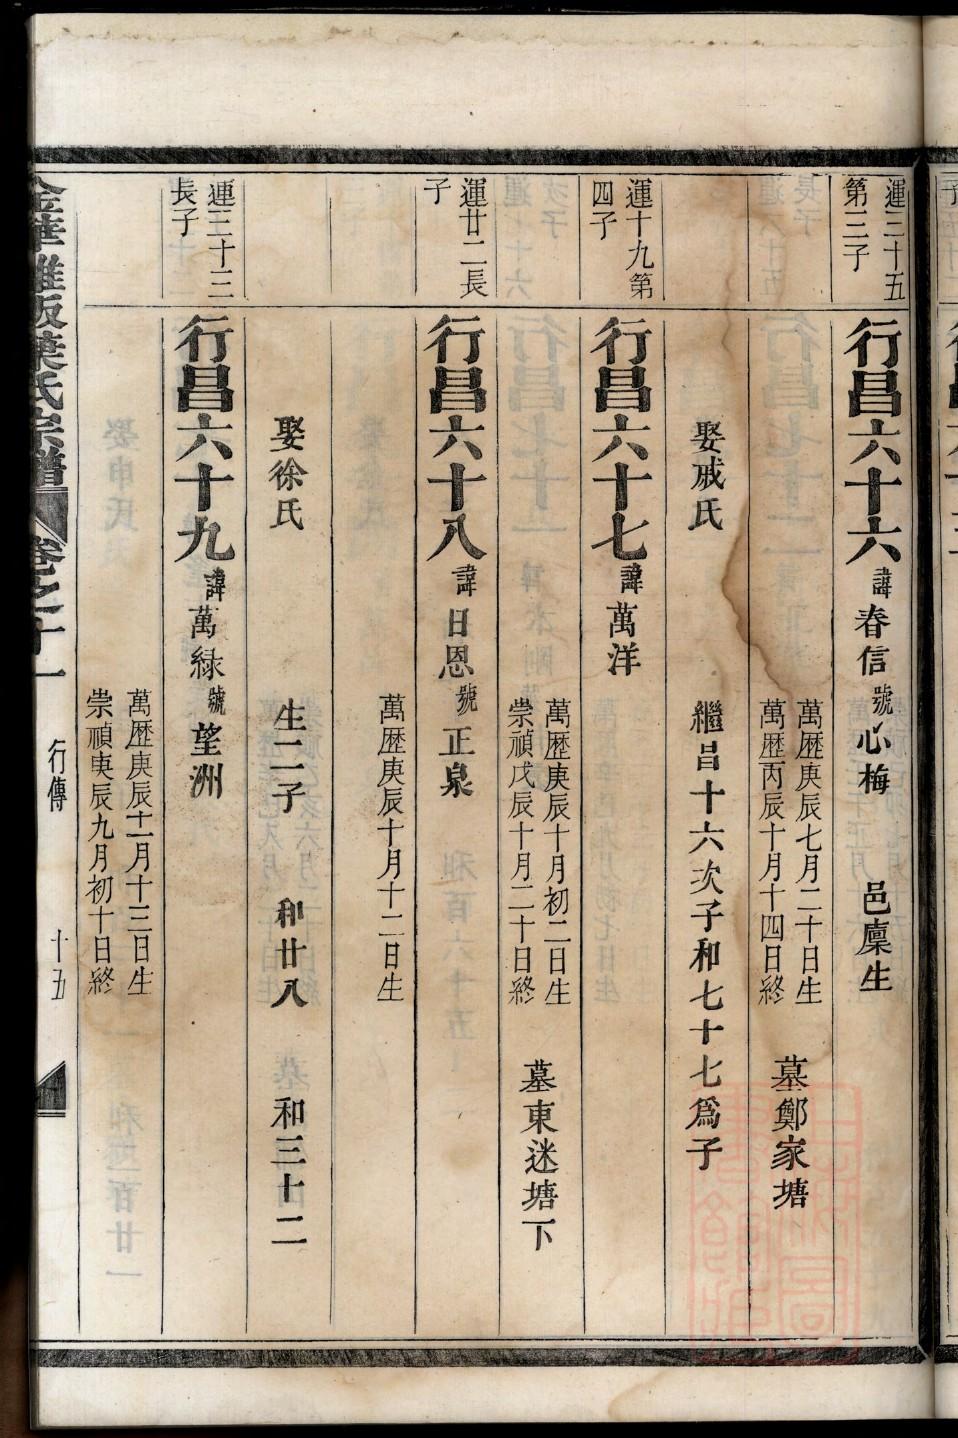 運三十五
第三子
行昌六十六 諱春信 號心梅 邑廩生
萬歷庚辰七月二十日生
萬歷丙辰十月十四日終
墓鄭家塘
娶戚氏 繼昌十六次子和七十七爲子
運十九第
四子
行昌六十七 諱萬洋
萬歷庚辰十月初二日生
崇禎戊辰十月二十日終
墓東迷塘下
運廿二長
子
行昌六十八 諱日恩 號正泉
萬歷庚辰十月十二日生
娶徐氏 生二子 和廿八 和三十二
運三十三
長子
行昌六十九 諱萬綠 號望洲
萬歷庚辰十一月十三日生
崇禎庚辰九月初十日終
金華雅畈葉氏宗譜 卷之十一 行傳 十五